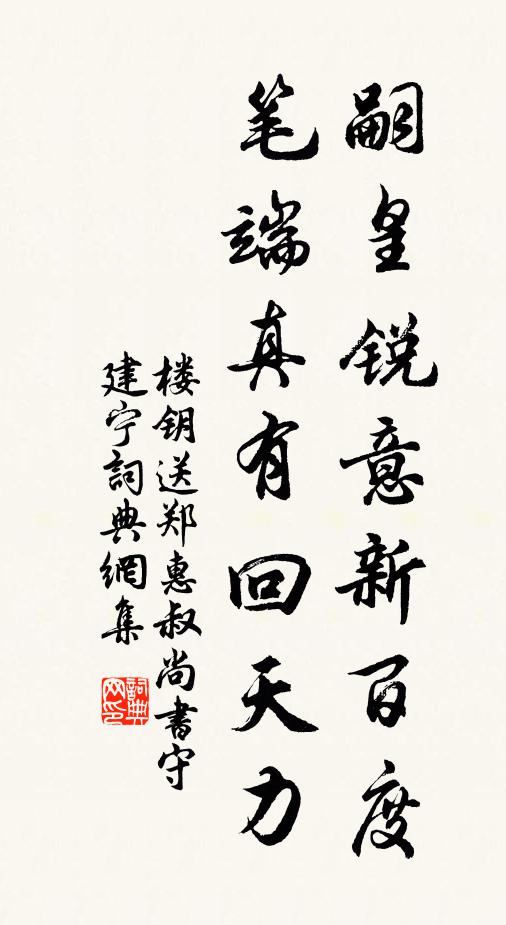 嗣皇锐意新百度
笔端真有回天力
楼钥送郑惠叔尚书守
建宁詞典網集
詞典
网印